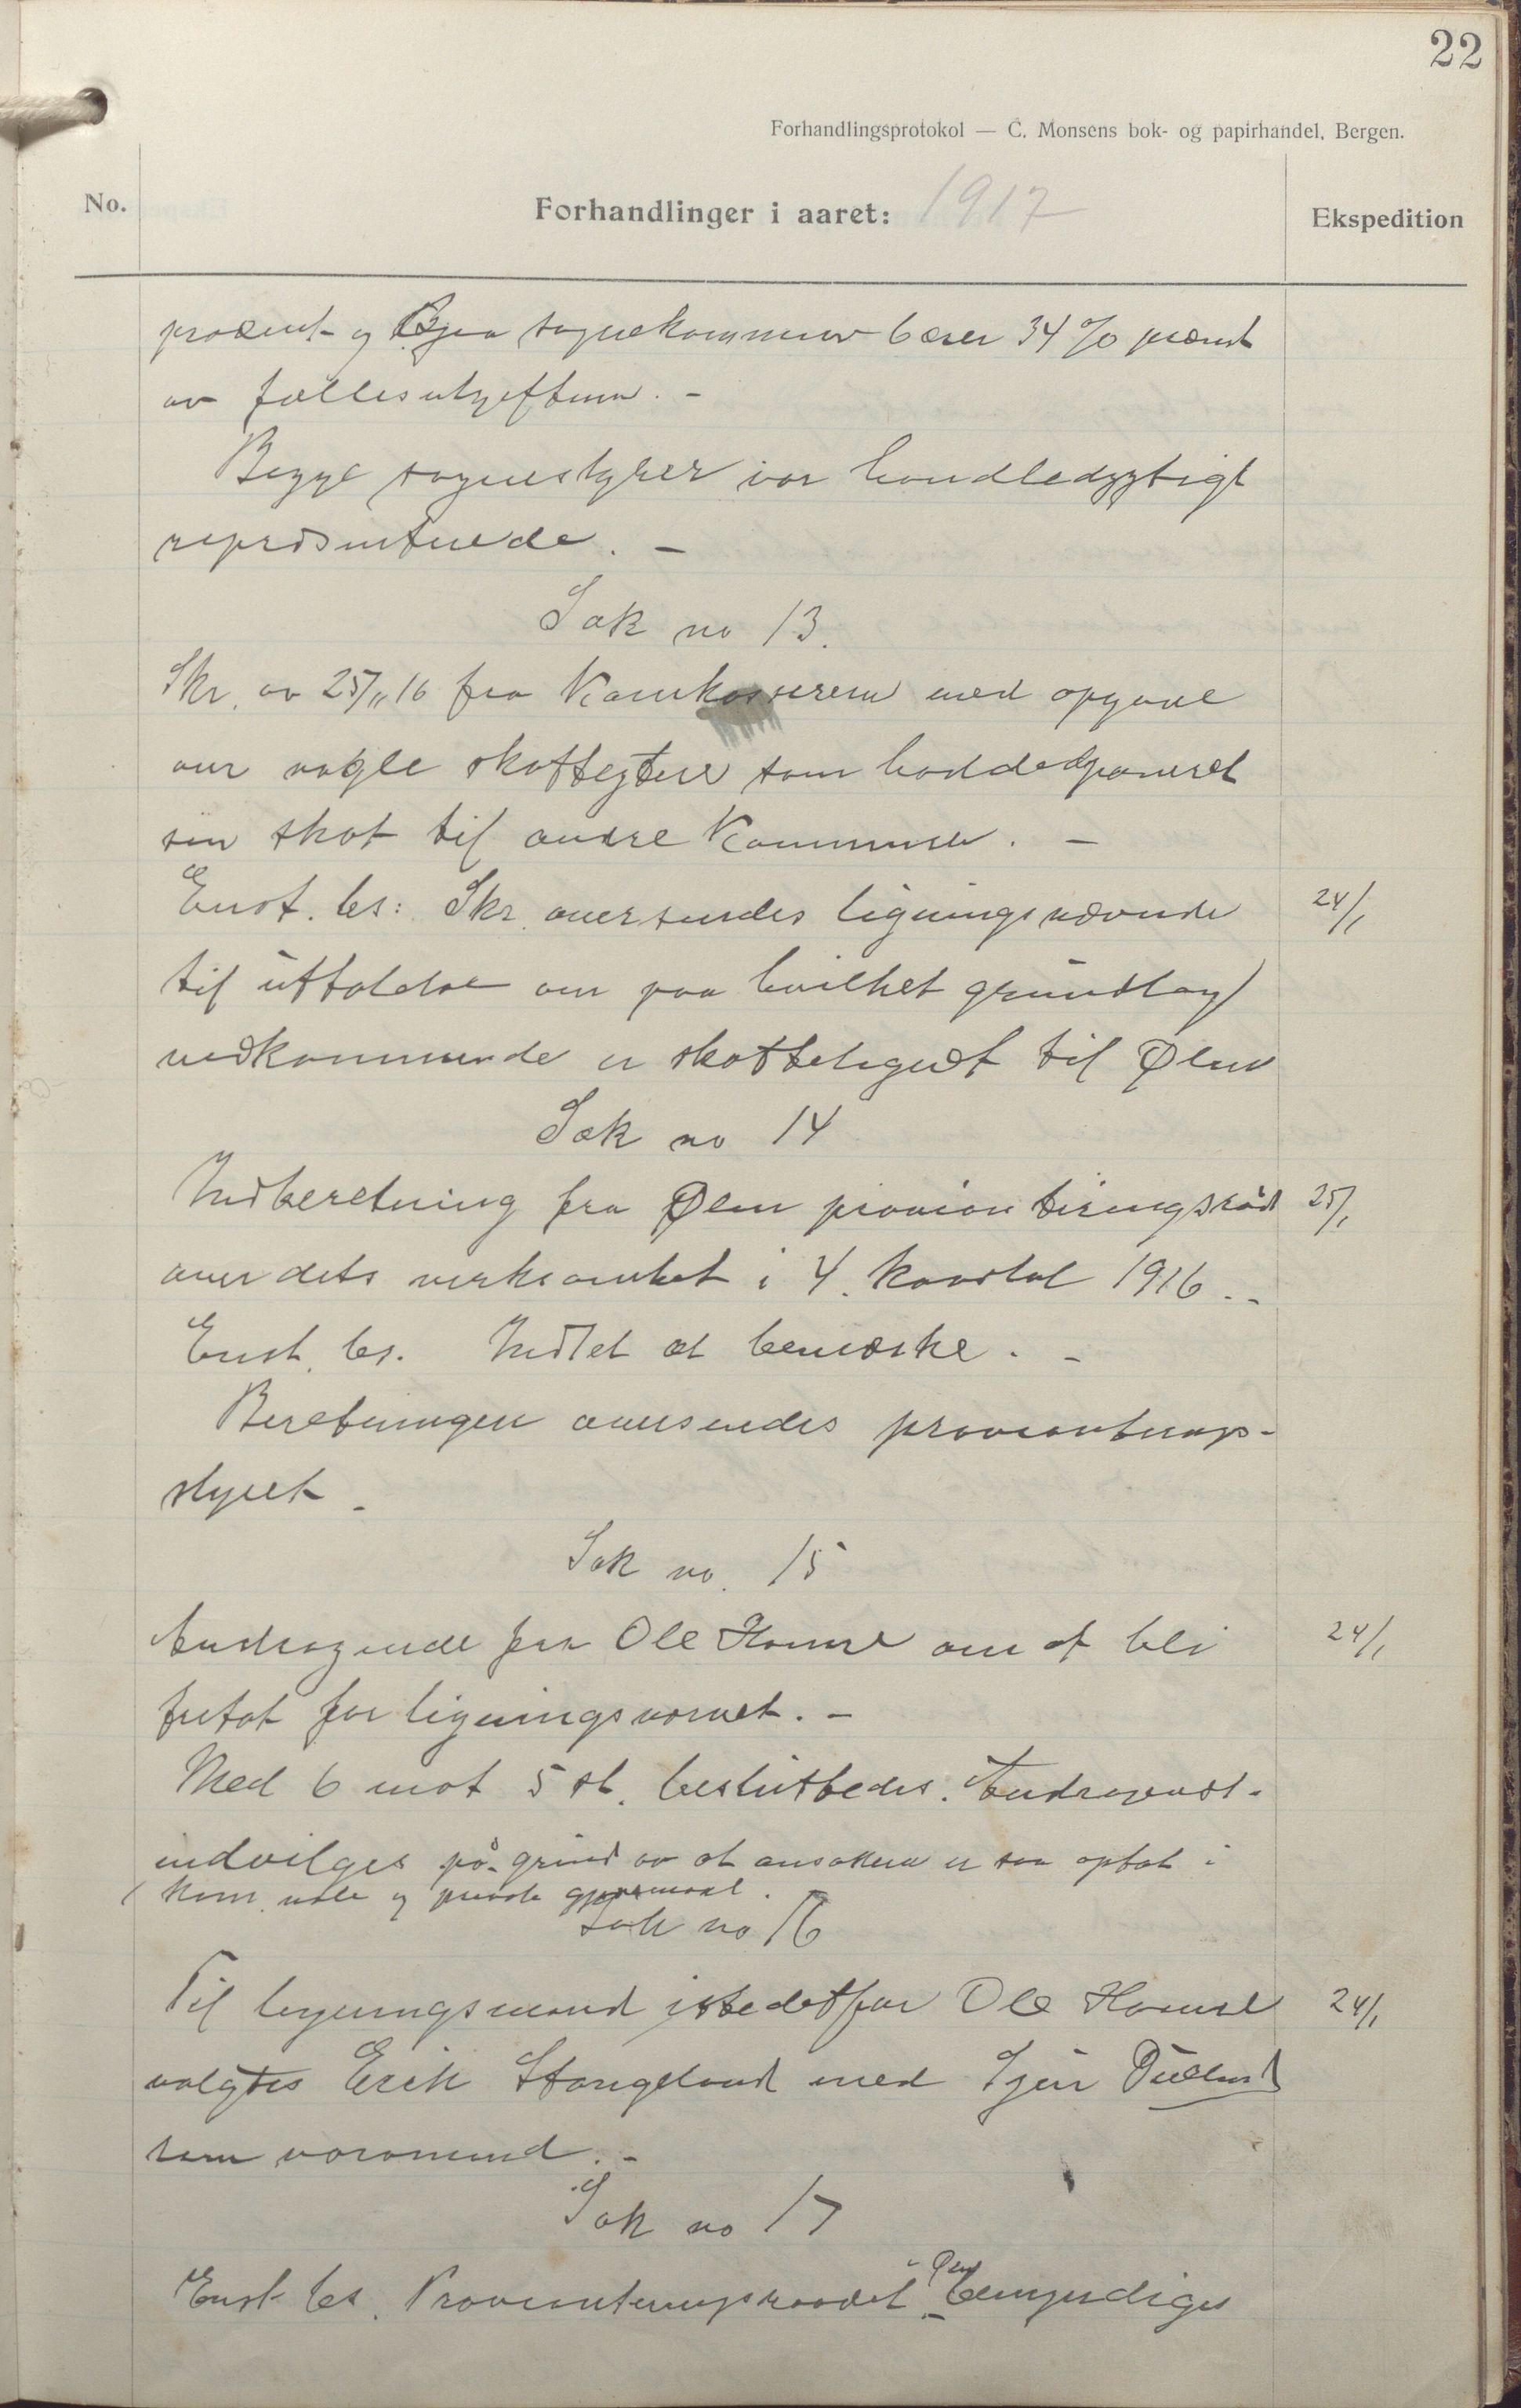 22
Forhandlingsprotokol — C. Monsens bok- og papirhandel, Bergen.
No.
Forhandlinger i aaret: 1917
Ekspedition
procent og Bjoa sognekommune bærer 34 % procent
av fællesutgifterne. -
Begge sognestyrer var handledygtigt
repræsenterede. -
Sak no 13.
Skr. av 25/11 16 fra Komkassereren med opgave
over nogle skatteytere som hadde deponeret
sin skat til andre Kommuner. -
Enst. bes: Skr. oversendes ligningsnævnde 24/1
til uttalelse om paa hvilket grundlag
vedkommende er skattelignet til Ølen
Sak no 14
Indberetning fra Ølen proviantiringsråd 25/1
over dets virksomhet i 4. kvartal 1916. -
Enst. bes. Intet at bemerke. -
Beretningen oversendes provianterings-
styret -
Sak no. 15
Andragende fra Ole Hamre om at bli 24/1
fritat for ligningsvervet. -
Med 6 mot 5 st. besluttedes: Andragendet
indvilges på grund av at ansøkeren er saa optat i
kommunale og private gjøremaal.
Sak no 16
Til ligningsmand istedetfor Ole Hamre 24/1
valgtes Erik Stangeland med
som varamand. -
Sak no 17
Enst. bes. Provianteringsraadet i Ølen bemyndiges